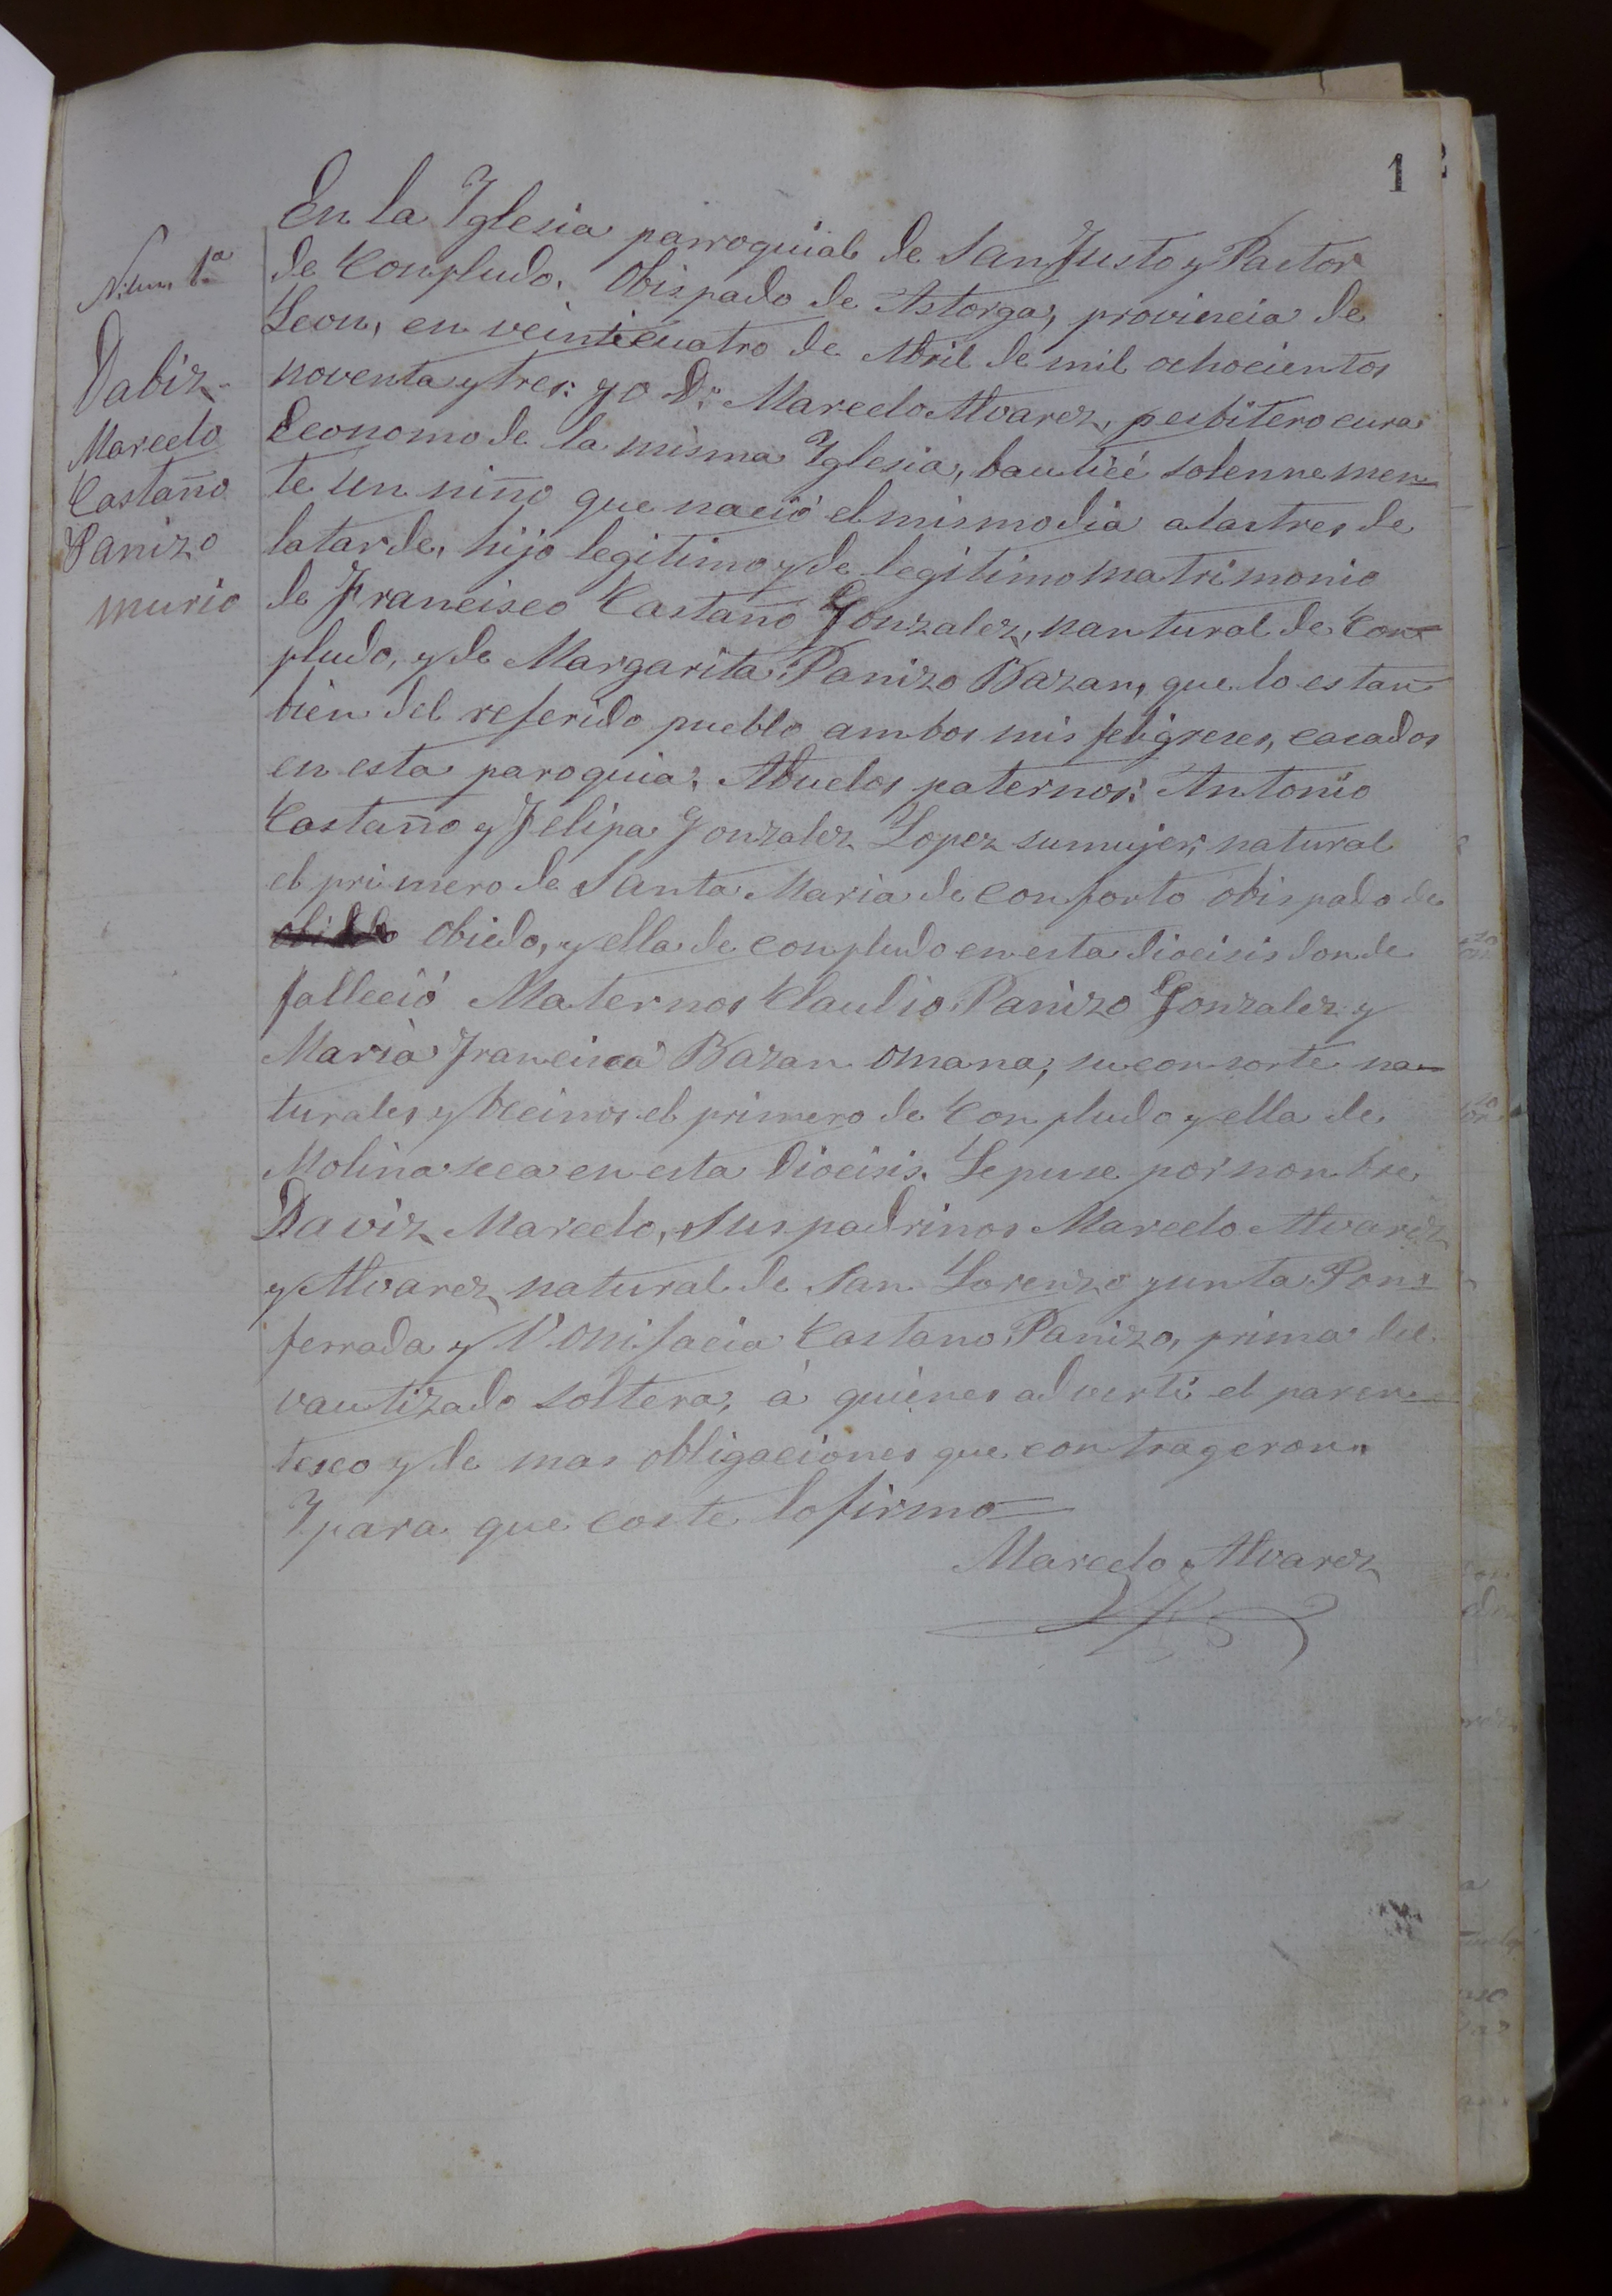 1
En la Yglesia parroquial de San Justo y Pastor
de Conpludo, Obispado de Astorga, provincia de
Leon, en veinticuatro de Abril de mil ochocientos
noventa y tres: yo D.n Marcelo Alvarez, pesbitero cura
Economo de la misma Yglesia, bauticé solennemen
te un niño que nació el mismo dia a las tres de
la tarde, hijo legitimo y de legitimo matrimonio
de Francisco Castaño Gonzalez, nantural de Con
pludo, y de Margarita Panizo Bazan, que lo es tan
bien del referido pueblo ambos mis feligreses, casados
en esta paroquia; Abuelos paternos: Antonio
Castaño y Felipa Gonzalez Lopez su mujer; natural
el primero de Santa Maria de Conforto obispado de
Obiedo, y ella de Conpludo en esta diocisis donde
falleció Maternos Claudio Panizo Gonzalez y
Maria Francisca Bazan Omana, su consorte na
turales y becinos el primero de Conpludo y ella de
Molinaseca en esta Diocisis. Le puse por nonbre
Daviz Marcelo, Sus padrinos Marcelo Alvarez
y Alvarez natural de San Lorenzo yunta Pon
ferrada y Bonifacia Castano Panizo, prima del
vautizado soltera, à quienes advertí el paren
tesco y de mas obligaciones que contrageron
Y para que coste lo firmo
Marcelo Alvarez
Num 1.a
Dabiz
Marcelo
Castaño
Panizo
murio